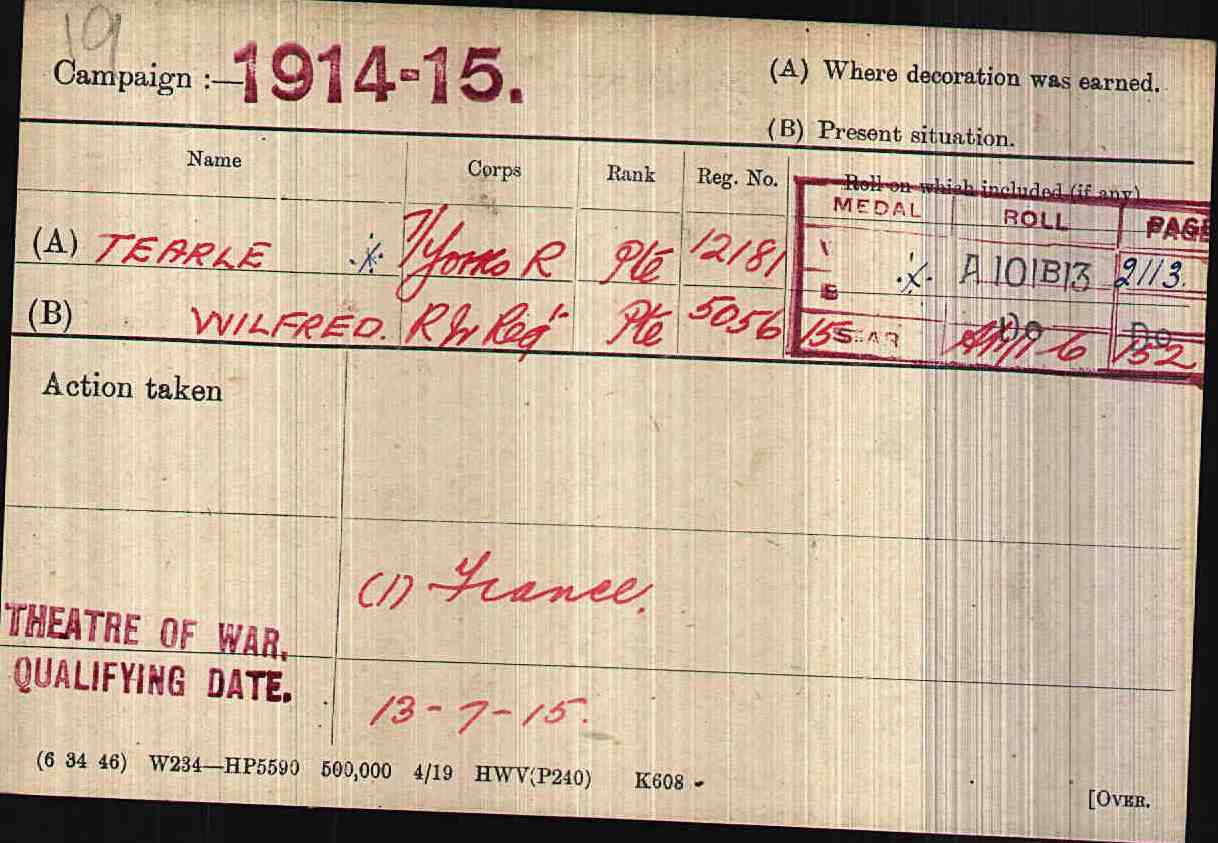 19
Campaign :— 1914-15.
(A) Where decoration was earned.
(B) Present situation.
Name Corps Rank Reg. No. Roll on which included (if any)
MEDAL ROLL PAGE
(A) TEARLE 7/Yorks R Pte 12181 V A/101B13 2113.
B Do Do
(B) WILFRED. R W Reg Pte 5056 15 STAR 6 152
Action taken
(1) France.
THEATRE OF WAR,
QUALIFYING DATE.
13-7-15.
(6 34 46) W234—HP5590 500,000 4/19 HWV(P240) K608
[OVER.